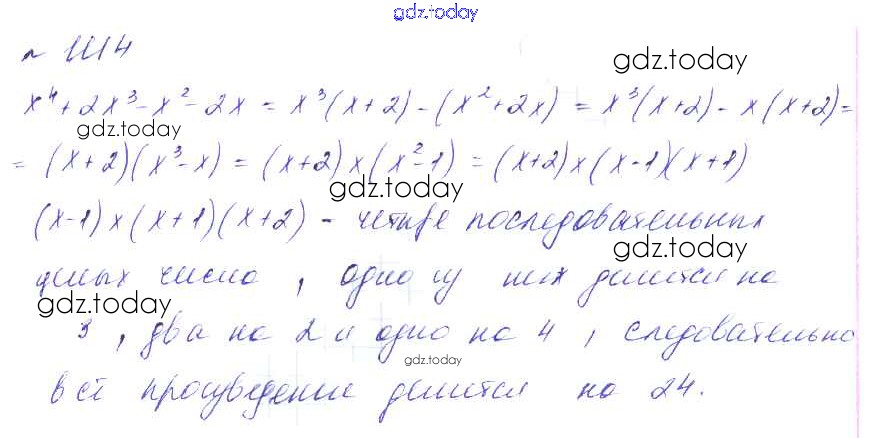 gdz.today
№ 1114
gdz.today
x⁴ + 2x³ - x² - 2x = x³(x+2) - (x² + 2x) = x³(x+2) - x(x+2) =
gdz.today
= (x+2)(x³ - x) = (x+2)x(x² - 1) = (x+2)x(x-1)(x+1)
gdz.today
(x-1)x(x+1)(x+2) - четыре последовательных
gdz.today
целых числа, одно из них делится на
gdz.today
3, два на 2 и одно на 4, следовательно
gdz.today
всё произведение делится на 24.